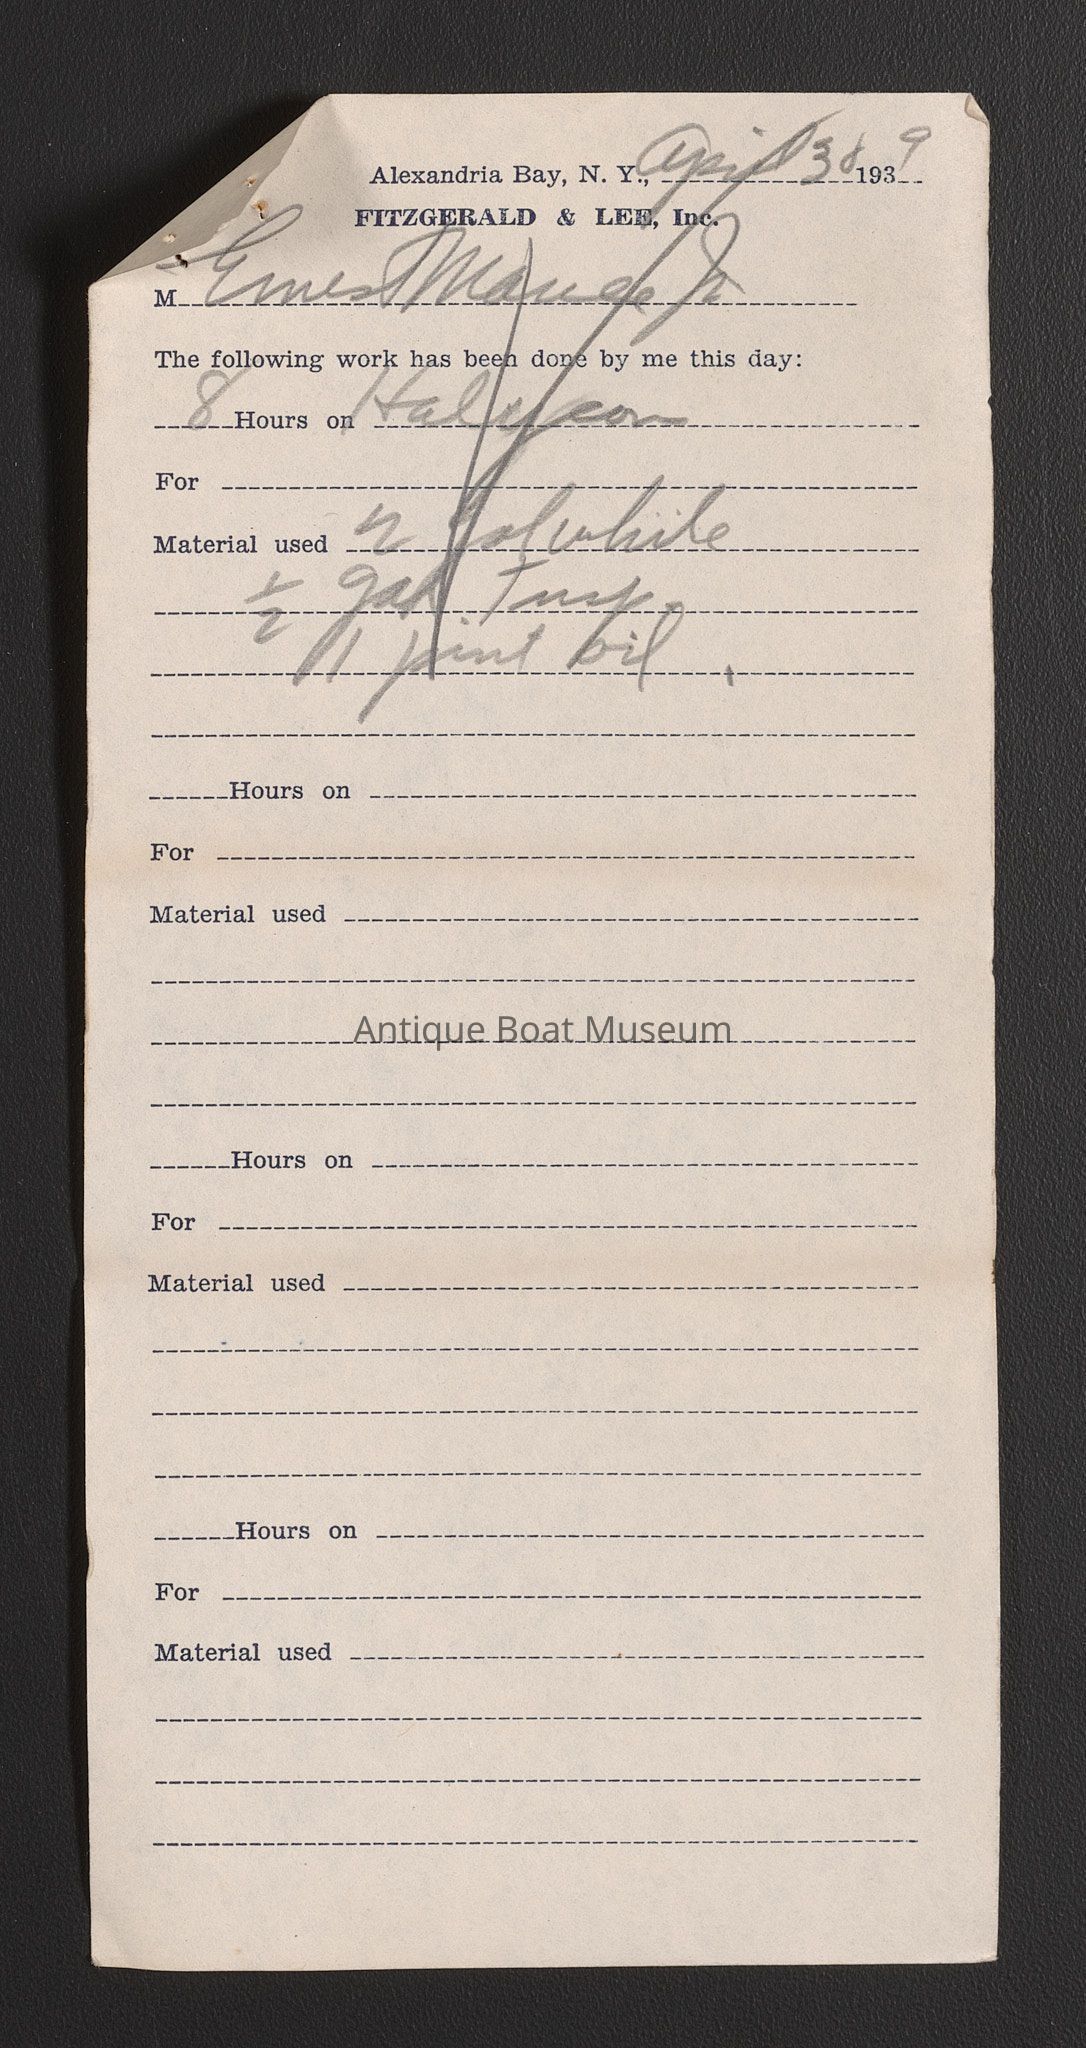 Alexandria Bay, N. Y., April 1939
FITZGERALD & LEE, Inc.
M Ernest
The following work has been done by me this day:
8 Hours on Halcyon
For
Material used gal white
1/2 gal Turp.
1 pint oil
Hours on
For
Material used
Antique Boat Museum
Hours on
For
Material used
Hours on
For
Material used